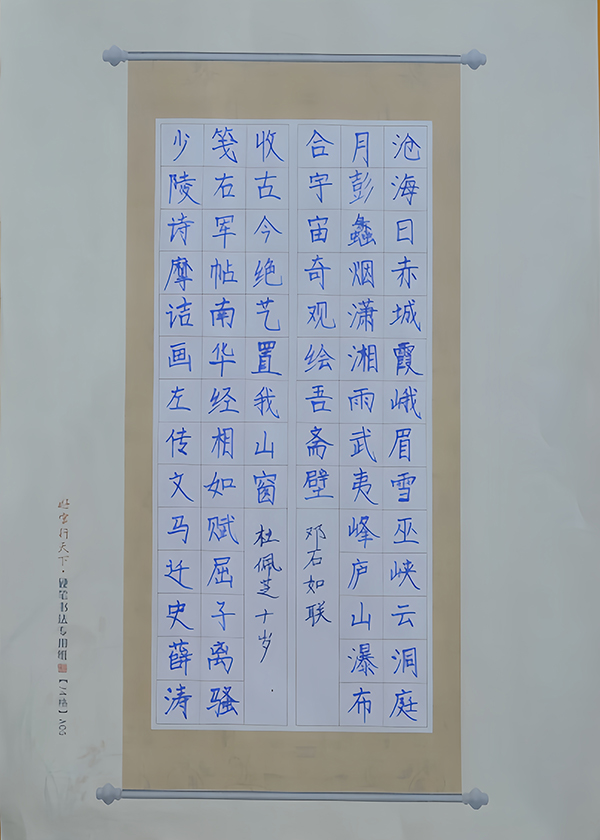 沧海日赤城霞峨眉雪巫峡云洞庭
月彭蠡烟潇湘雨武夷峰庐山瀑布
合宇宙奇观绘吾斋壁
邓石如联
少陵诗摩诘画左传文马迁史薛涛
笺右军帖南华经相如赋屈子离骚
收古今绝艺置我山窗
杜佩芝十岁
行天下·硬笔书法专用纸